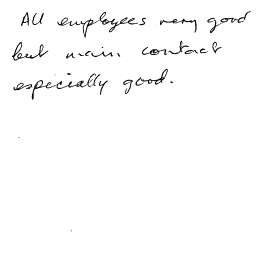 All employees very good
but main contact
especially good.